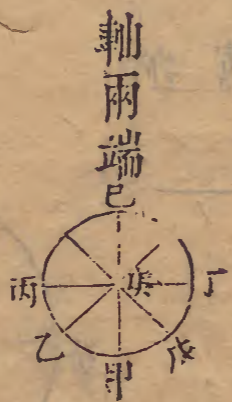 軸兩端
己
庚
丙
丁
乙
戊
甲